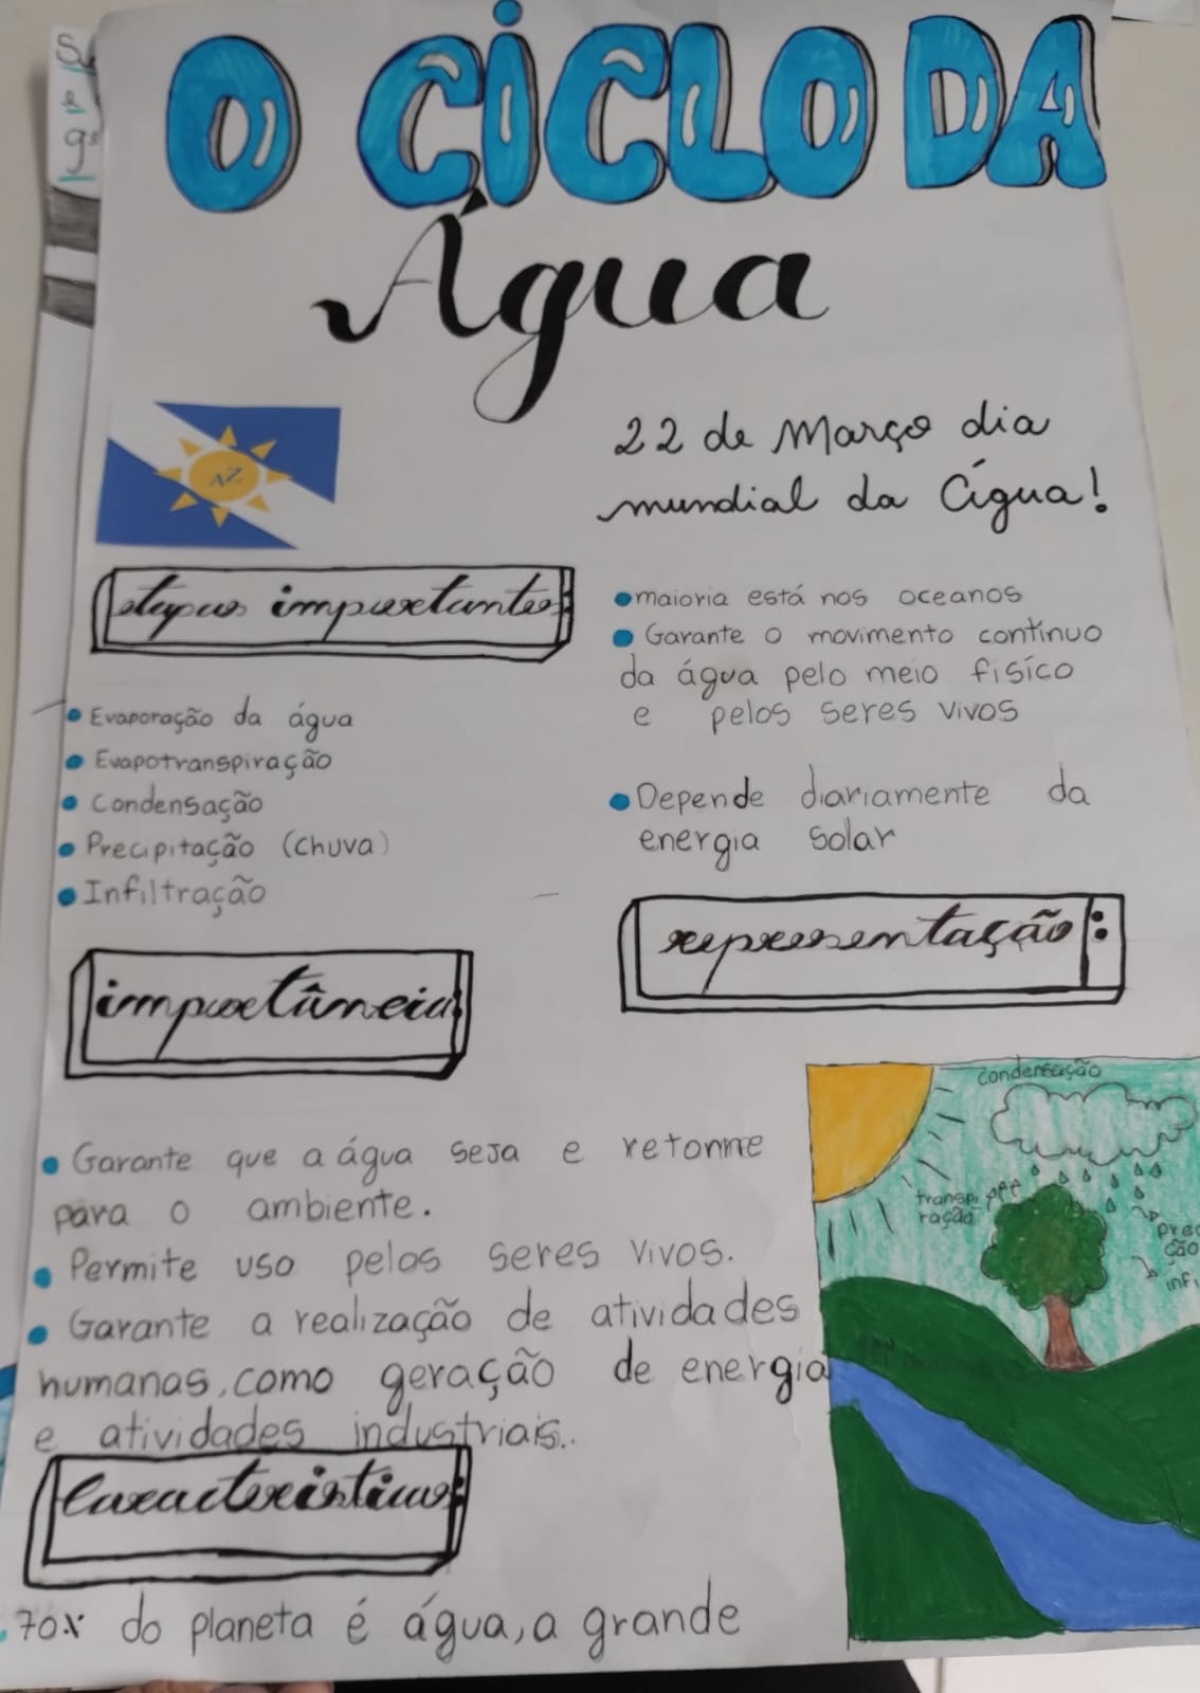 O CICLO DA
Água
22 de Março dia
mundial da Água!
AZ
etapas importantes:
• Evaporação da água
• Evapotranspiração
• Condensação
• Precipitação (chuva)
• Infiltração
importância:
• Garante que a água seja e retorne
para o ambiente.
• Permite uso pelos seres vivos.
• Garante a realização de atividades
humanas, como geração de energia
e atividades industriais..
Características:
• 70% do planeta é água, a grande
• maioria está nos oceanos
• Garante o movimento contínuo
da água pelo meio fisíco
e pelos seres vivos
• Depende diariamente da
energia solar
representação:
condensação
transpi
ração
prec
ção
infi